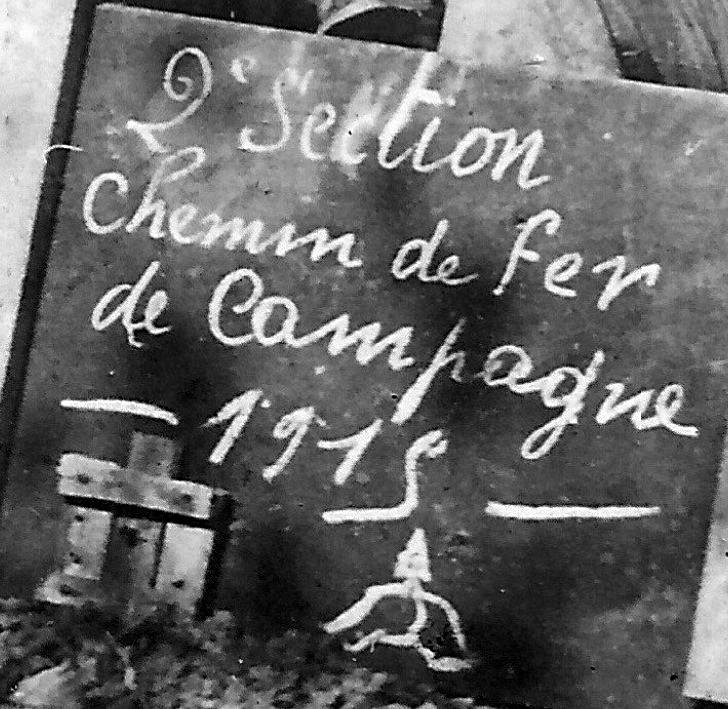 2e Section
Chemin de fer
de Campagne
— 1915 —